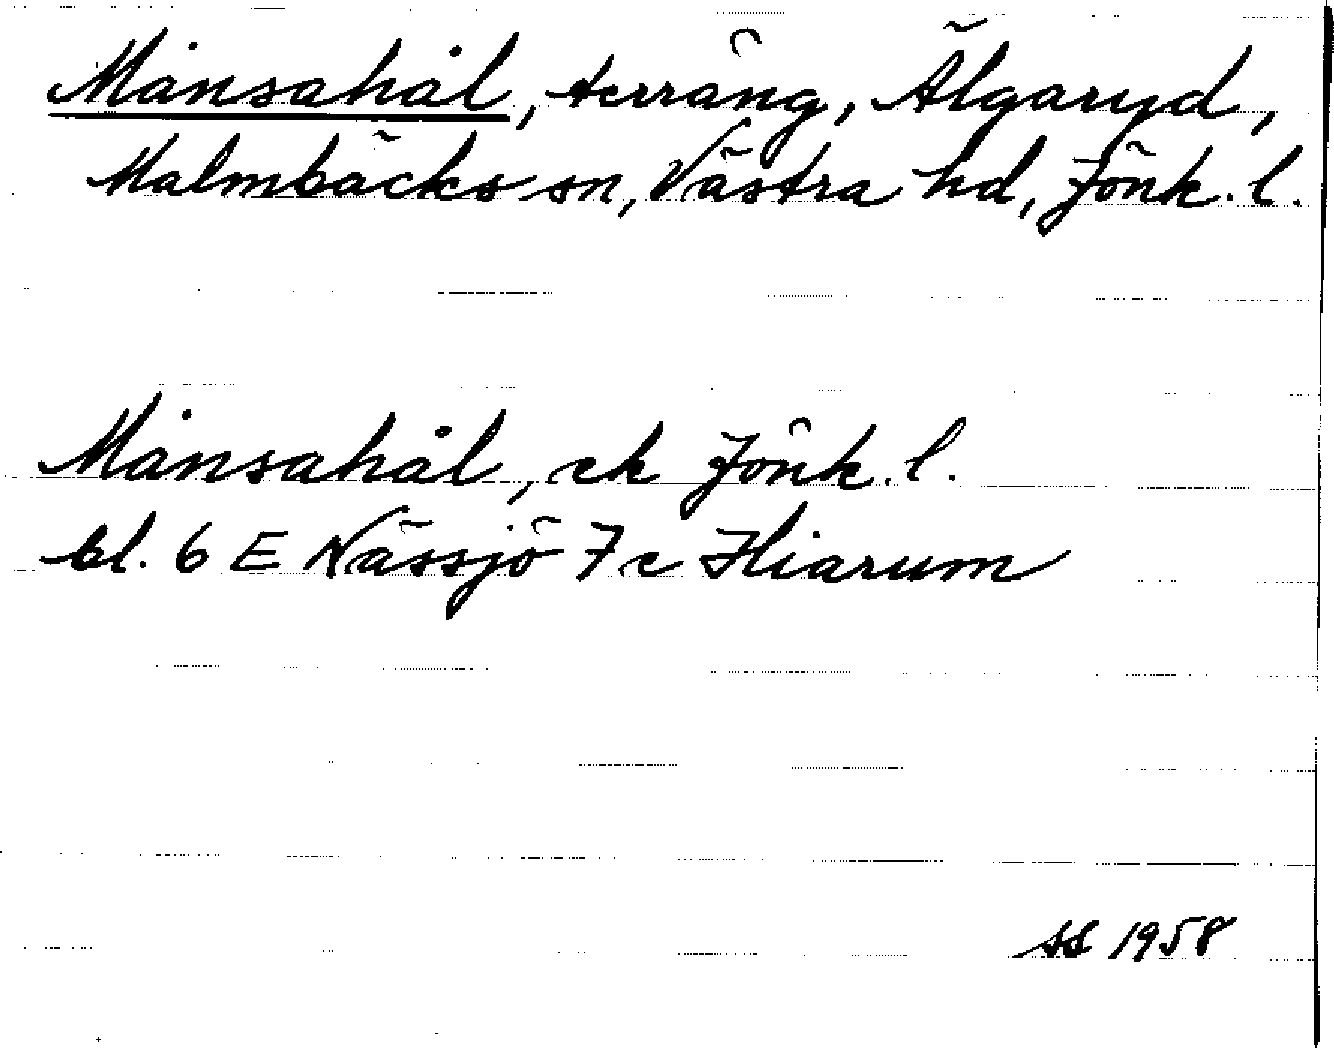 Månsahål, terräng, Älgaryd,
Malmbäcks sn, Västra hd, Jönk. l.
Månsahål, ek Jönk. l.
bl. 6 E Nässjö 7c Hiarum
SS 1958